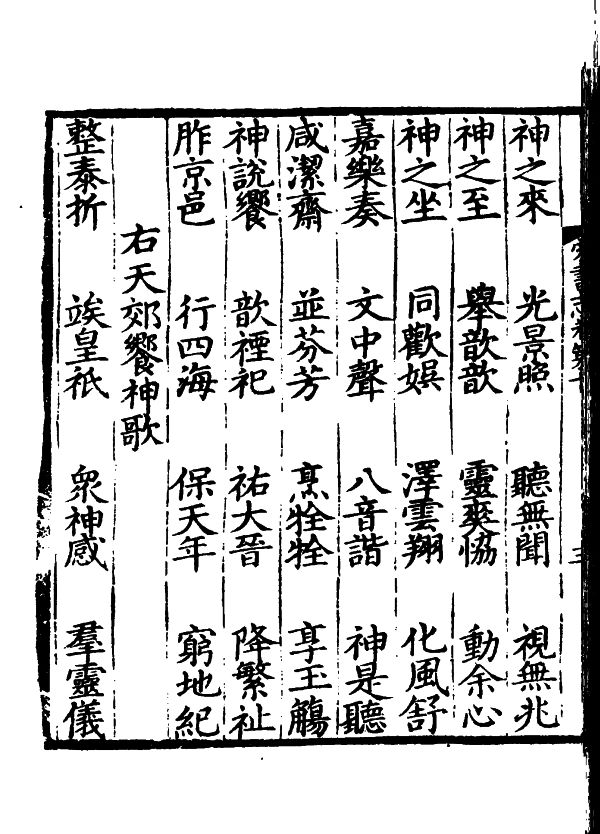 神之來 光景照 聽無聞 視無兆
神之至 舉歆歆 靈爽協 動余心
神之坐 同歡娛 澤雲翔 化風舒
嘉樂奏 文中聲 八音諧 神是聽
咸潔齋 並芬芳 烹牷牷 享玉觴
神說饗 歆禋祀 祐大晉 降繁祉
胙京邑 行四海 保天年 窮地紀
右天郊饗神歌
整泰折 竢皇祇 衆神感 羣靈儀